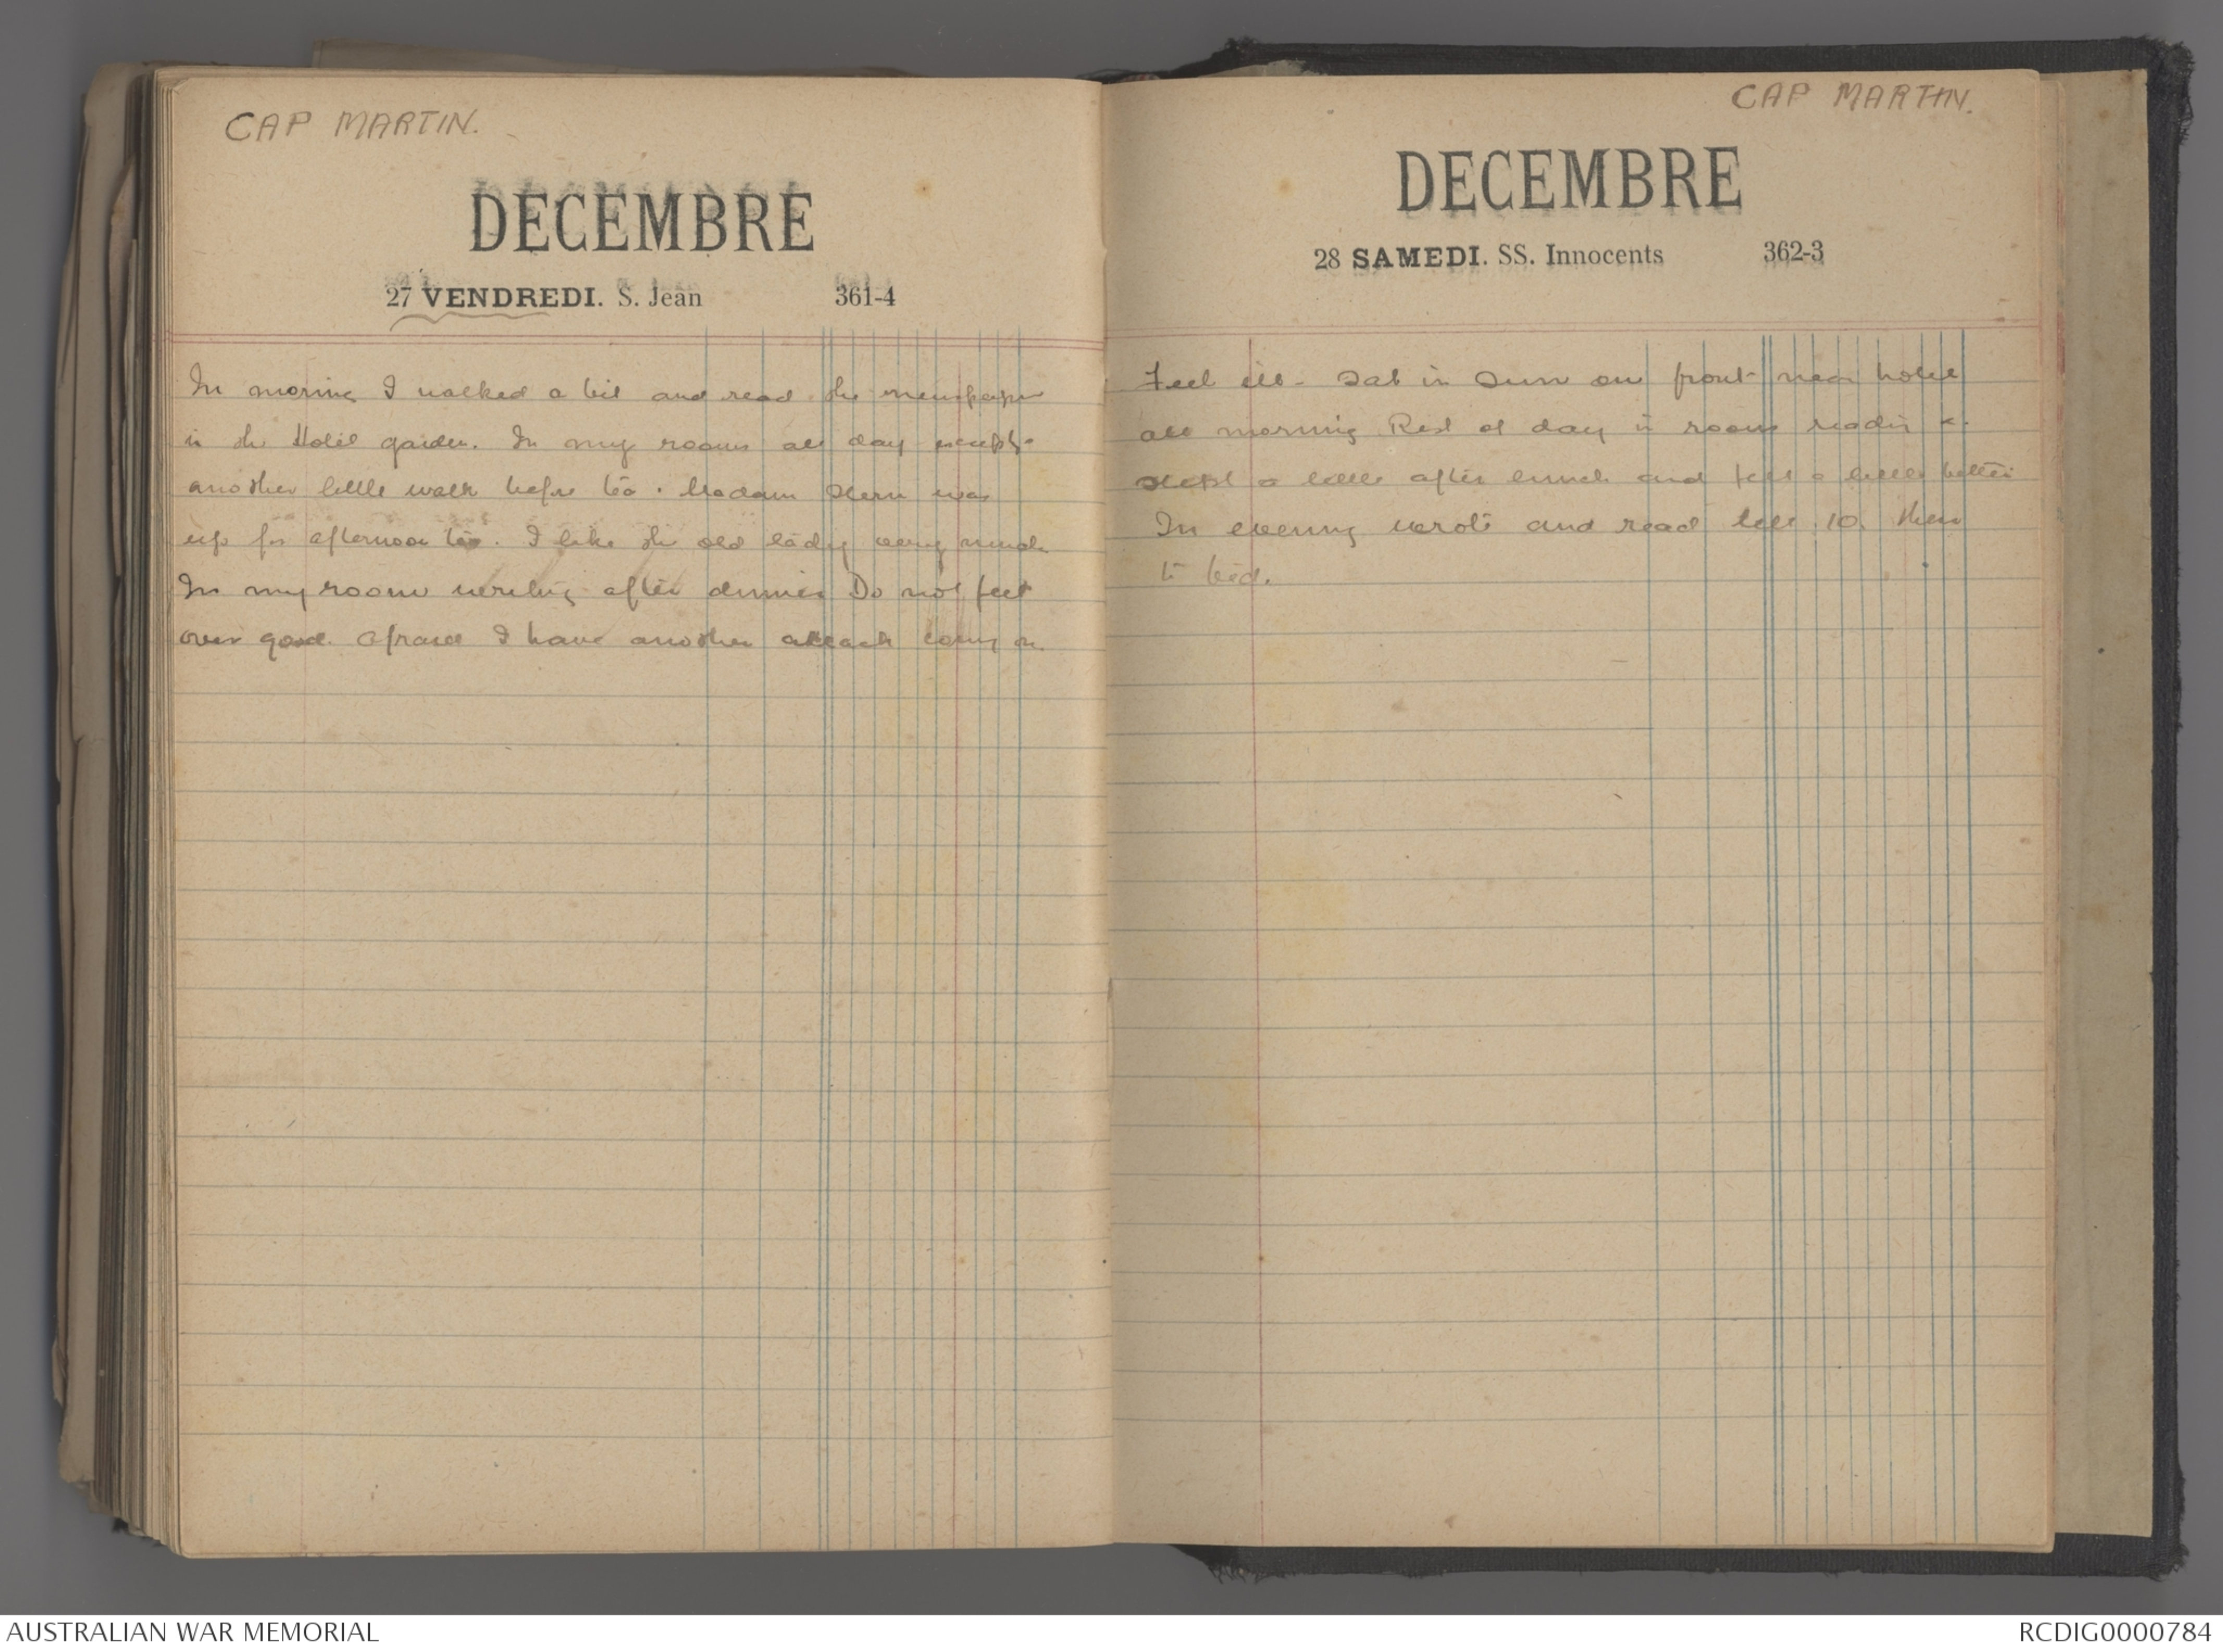 CAP MARTIN.
DECEMBRE
27 VENDREDI. S. Jean 361-4
In morning I walked a bit and read the newspaper
in the Hotel garden. In my room all day except
another little walk before tea. Madam Stern was
up for afternoon tea. I like the old lady very much
In my room writing after dinner Do not feel
over good. Afraid I have another attack coming on
CAP MARTIN.
DECEMBRE
28 SAMEDI. SS. Innocents 362-3
Feel ill - Sat in Sun on front near hotel
all morning Rest of day in room reading &.
slept a little after lunch and felt a little better
In evening wrote and read till 10. then
to bed.
AUSTRALIAN WAR MEMORIAL
RCDIG0000784